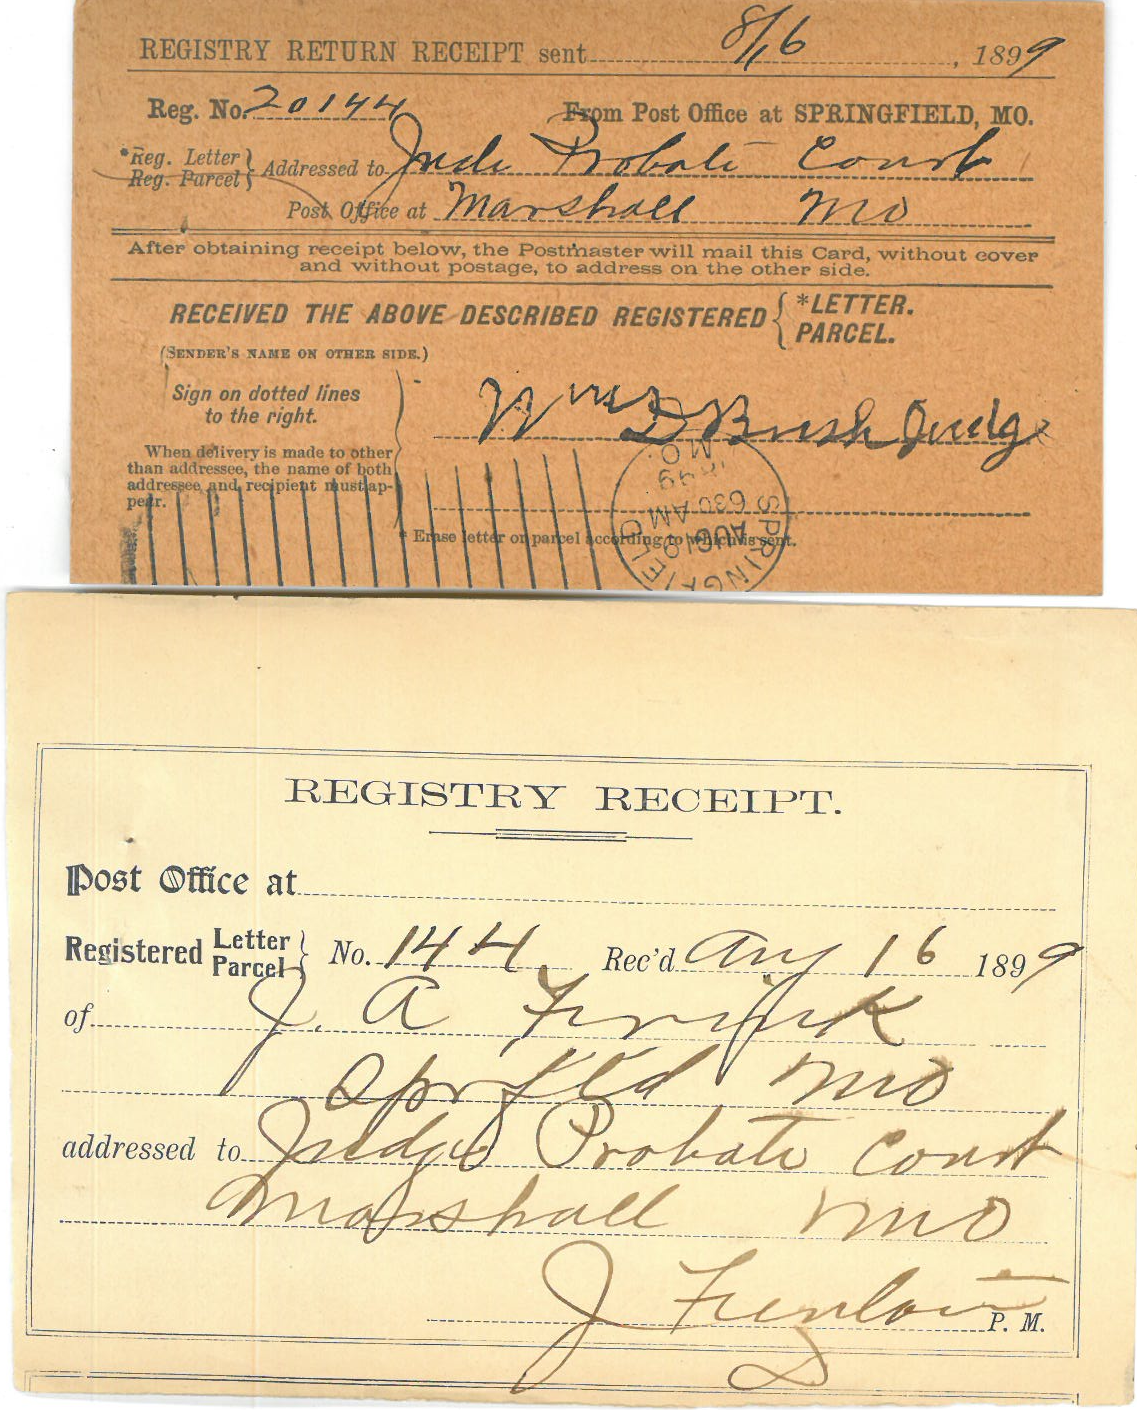 REGISTRY RETURN RECEIPT sent 8/16, 1899
Reg. No. 20144 From Post Office at SPRINGFIELD, MO.
*Reg. Letter } Addressed to Jude Probate Court
Reg. Parcel }
Post Office at Marshall Mo
After obtaining receipt below, the Postmaster will mail this Card, without cover
and without postage, to address on the other side.
RECEIVED THE ABOVE DESCRIBED REGISTERED { *LETTER.
PARCEL.
(SENDER'S NAME ON OTHER SIDE.)
Sign on dotted lines
to the right.
Wm D Bush Judge
When delivery is made to other
than addressee, the name of both
addressee and recipient must ap-
pear.
* Erase letter or parcel according to which is sent.
SPRINGFIELD MO.
AUG 19
630 AM
1899
REGISTRY RECEIPT.
Post Office at
Registered Letter } No. 144 Rec'd Aug 16 1899
Parcel }
of J. A Frink
Sprfld Mo
addressed to Judge Probate Court
Marshall Mo
J P. M.